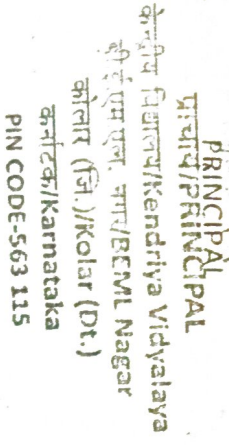 PRINCIPAL
प्राचार्य/PRINCIPAL
केन्द्रीय विद्यालय/Kendriya Vidyalaya
बी ई एम एल नगर/BEML Nagar
कोलार (जि.)/Kolar (Dt.)
कर्नाटक/Karnataka
PIN CODE-563 115